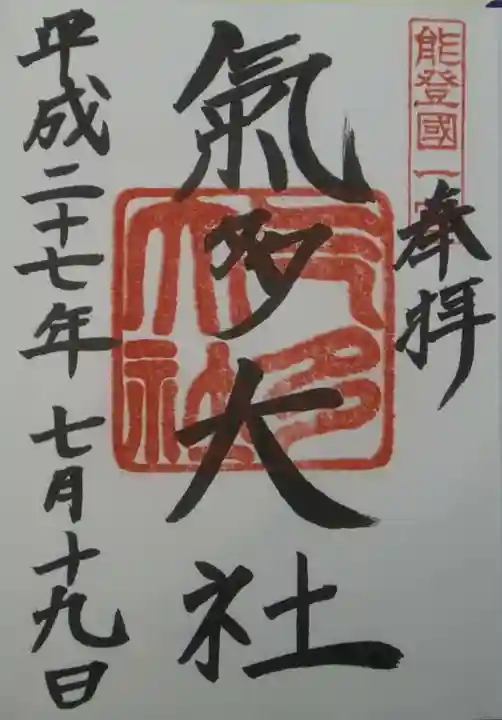 能登國一宮
奉拝
氣多大社
氣多大社
平成二十七年 七月十九日